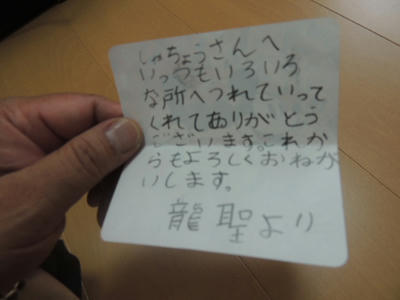 しゃちょうさんへ
いっつもいろいろ
な所へつれていって
くれてありがとう
ございます。これか
らもよろしくおねが
いします。
龍聖より